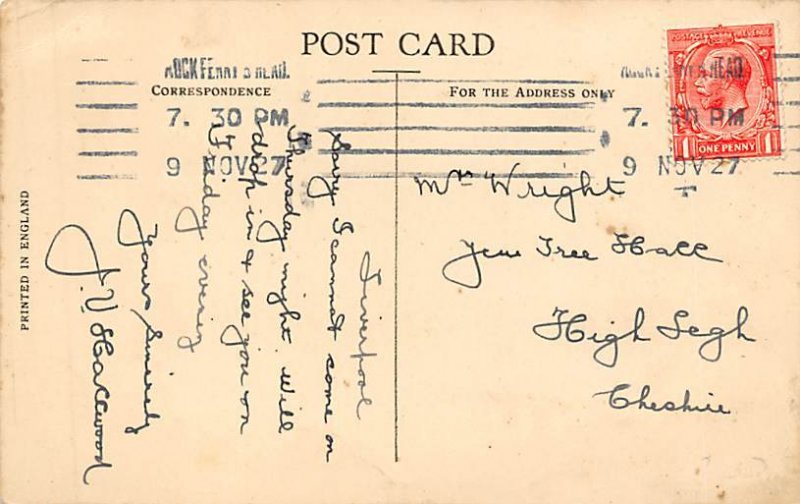 POST CARD
CORRESPONDENCE
FOR THE ADDRESS ONLY
ROCK FERRY B'HEAD.
7. 30 PM
9 NOV 27
7. 30 PM
9 NOV 27
POSTAGE REVENUE
1 ONE PENNY 1
PRINTED IN ENGLAND
Liverpool
Sorry I cannot come on
Thursday night. Will
drop in & see you on
Friday evening
Yours Sincerely
J. V. Hallwood
Mrs Wright
Yew Tree Hall
High Legh
Cheshire